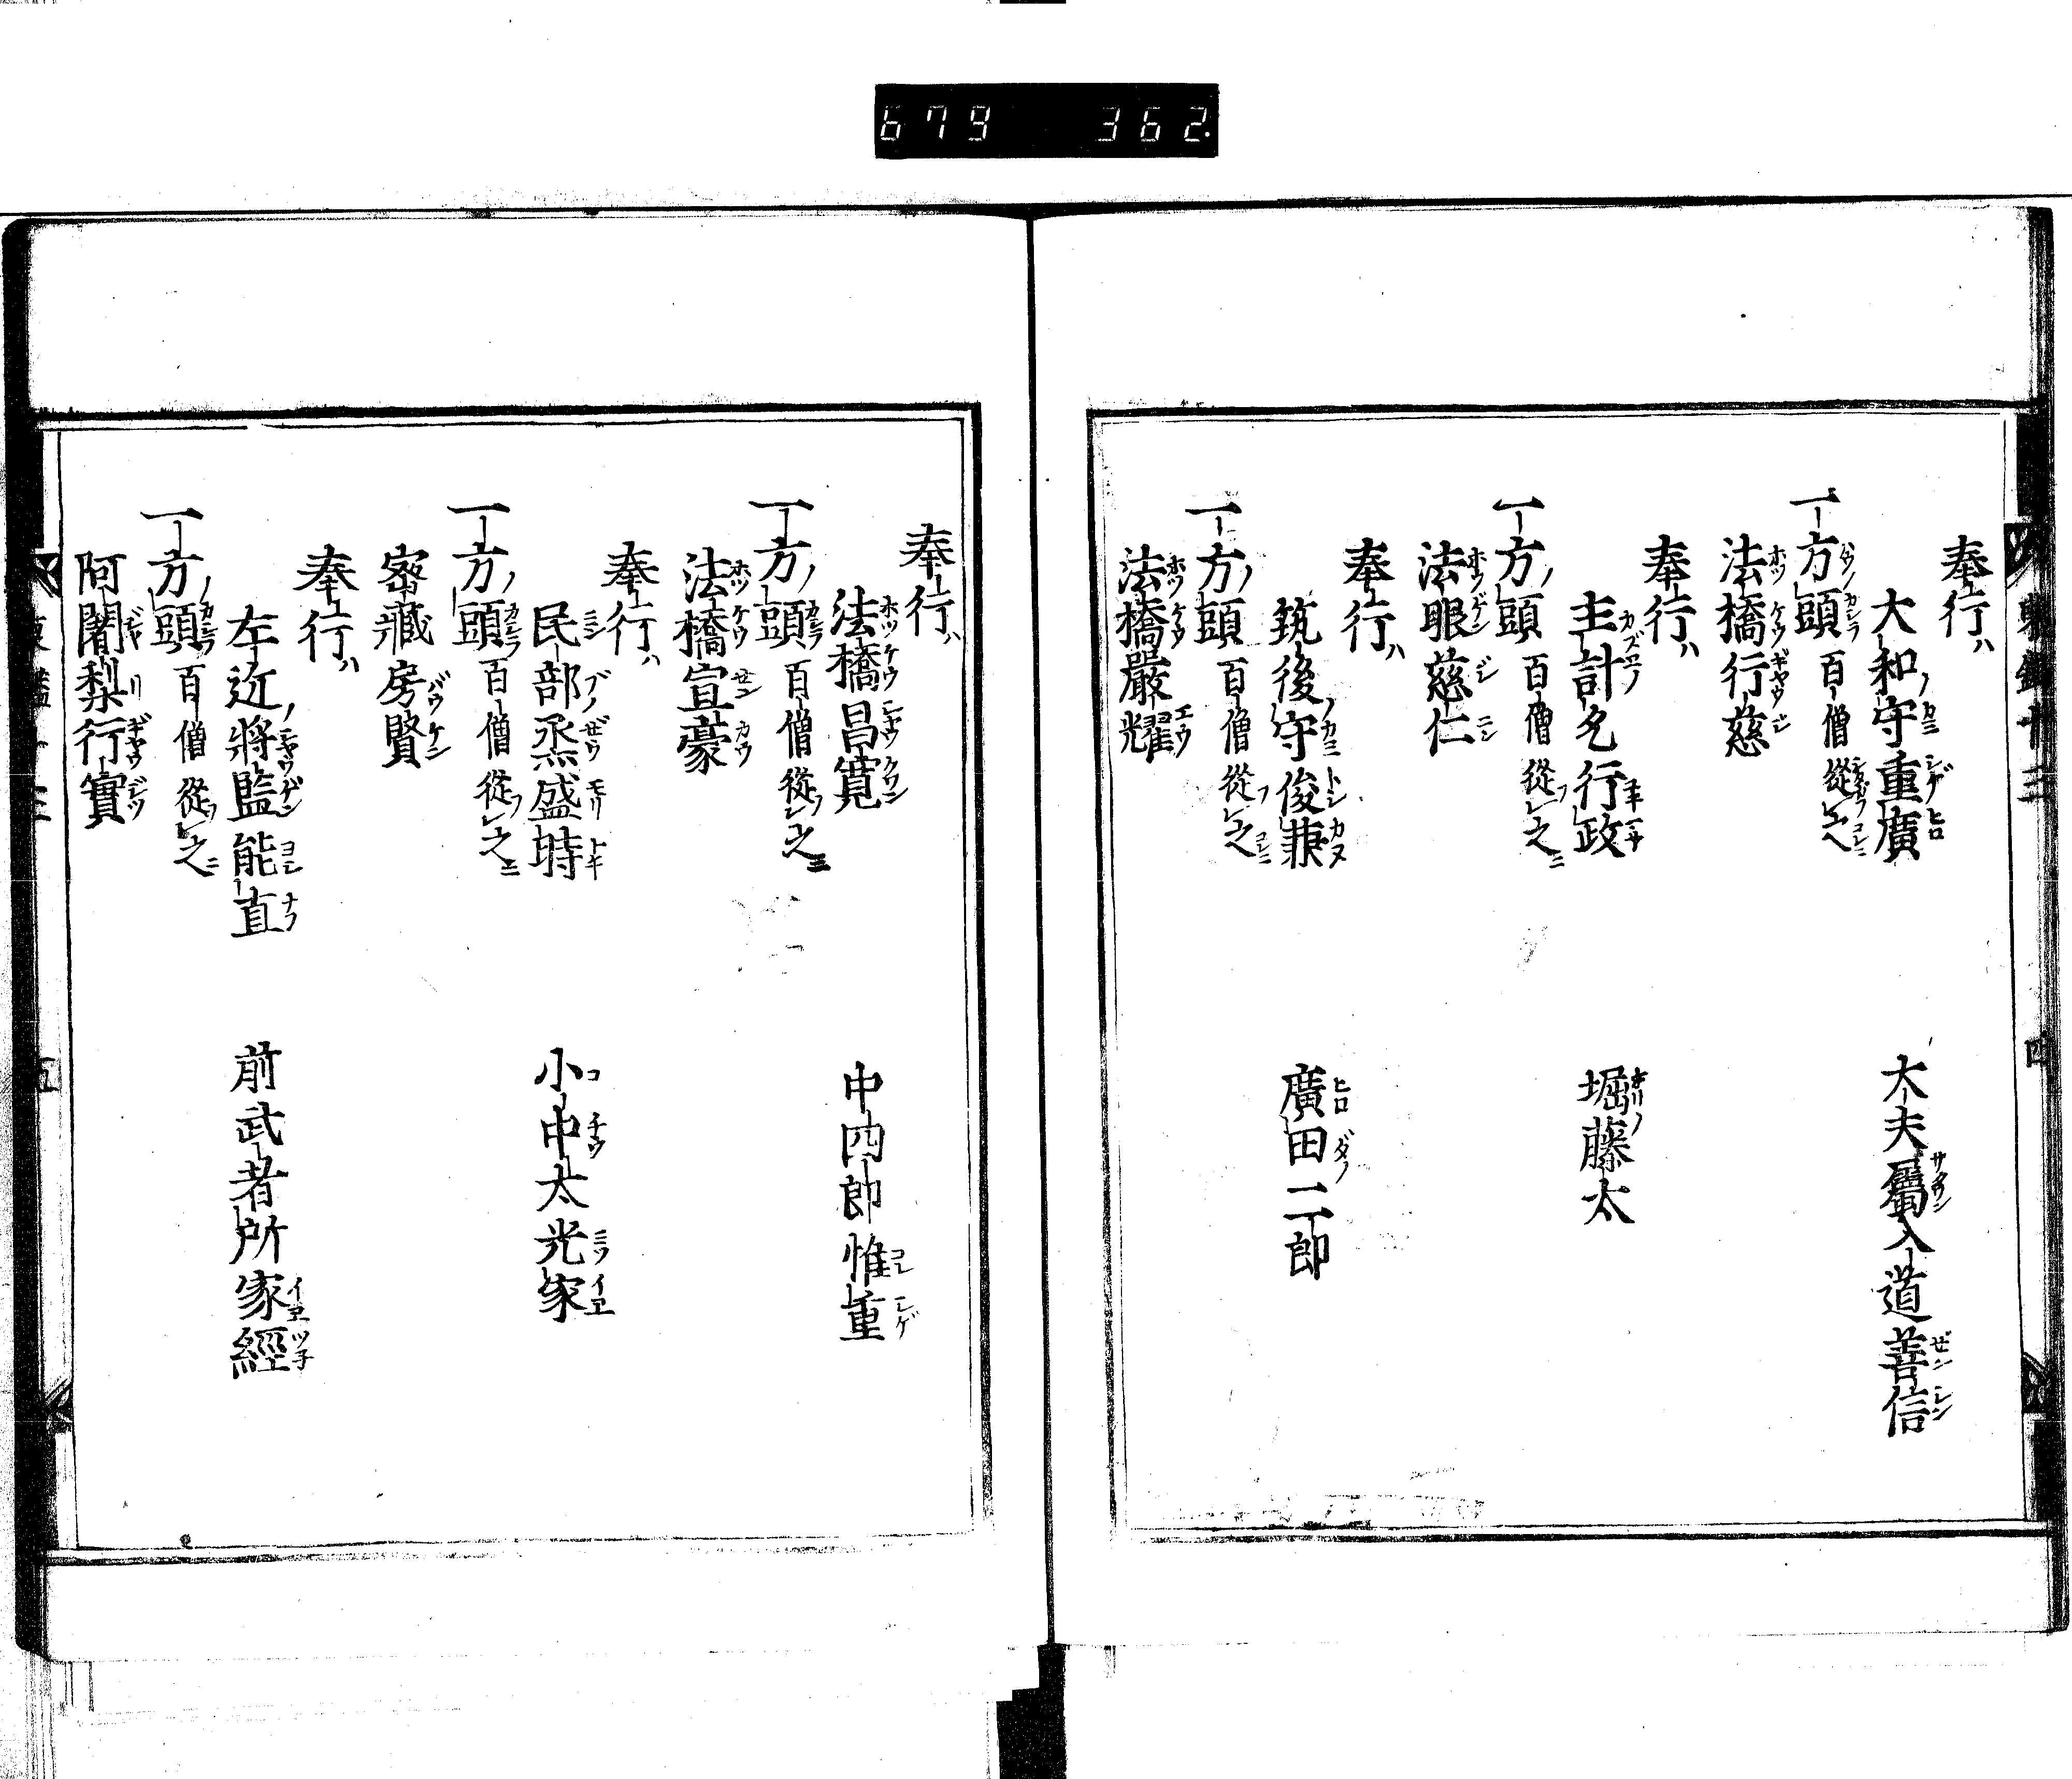 679 362.
奉行ハ
大和守重廣 大夫屬入道善信
一方頭 百僧從之
法橋行慈
奉行ハ
主計允行政 堀藤太
一方頭 百僧從之
法眼慈仁
奉行ハ
筑後守俊兼 廣田二郎
一方頭 百僧從之
法橋嚴耀
奉行ハ
法橋昌寛 中四郎惟重
一方頭 百僧從之
法橋宣豪
奉行ハ
民部丞盛時 小中太光家
一方頭 百僧從之
密藏房賢
奉行ハ
左近將監能直 前武者所家經
一方頭 百僧從之
阿闍梨行實